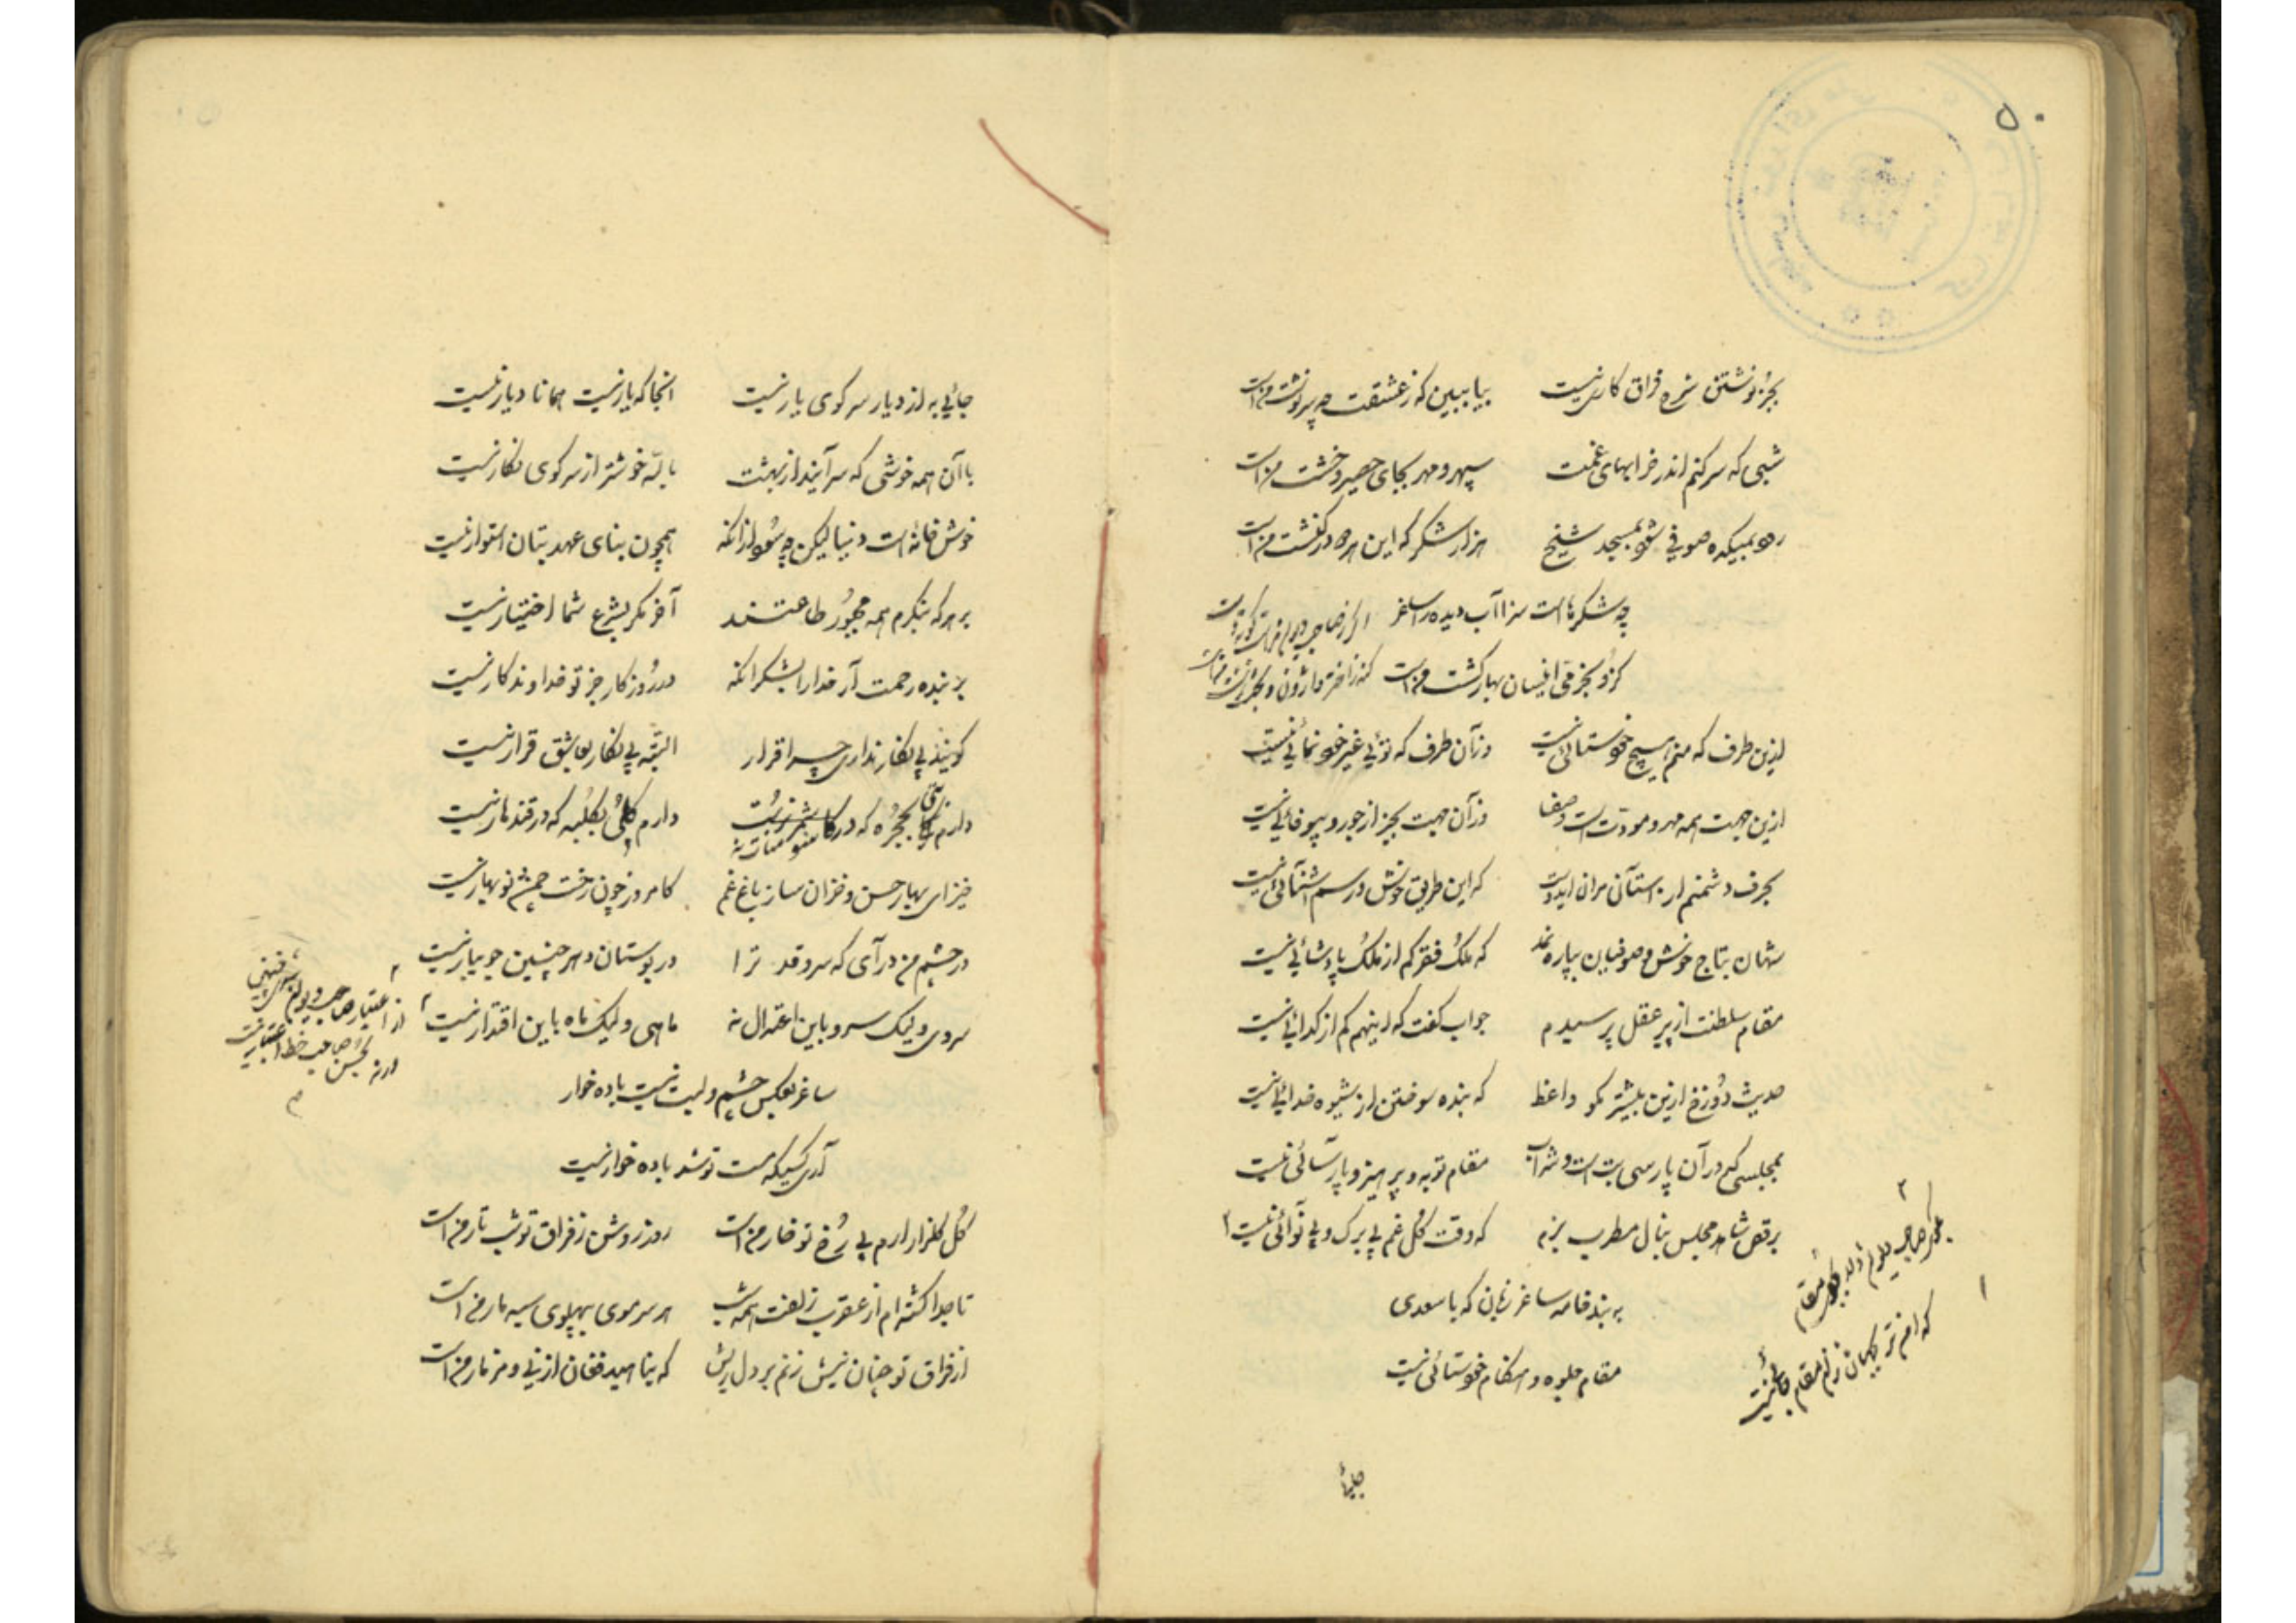 ۵۰
بجز نوشتن شرح فراق کاری نیست بیا ببین که ز عشقت چه سرنوشت من است
شبی که سر کنم اندر خرابهای غمت سپهر و مهر بجای حصیر و خشت من است
رود بمیکده صوفی شود بمسجد شیخ هزار شکر که این هر دو در کنشت من است
چه شکرهاست سزا آب دیده را ساغر
کزو بخرمی انیسان بهار کشت من است
ازین طرف که منم هیچ خودستائی نیست وز آن طرف که توئی غیر خودنمائی نیست
ازین جهت همه مهر و مودت است و صفا وز آن جهت بجز از جور و بیوفائی نیست
بحرف دشمنم از آستان مران ایدوست که این طریق خوش در رسم آشنائی نیست
شهان بتاج خوش و صوفیان بپاره نمد که ملک فقر کم از ملک پادشائی نیست
مقام سلطنت از پیر عقل پرسیدم جواب گفت که اینهم کم از گدائی نیست
حدیث دوزخ ازین بیشتر مگو واعظ که بنده سوختن از شیوه خدائی نیست
بمجلسی که در آن پارسی بت است و شراب مقام توبه و پرهیز و پارسائی نیست
برقص شاهد مجلس بنال مطرب بزم که وقت گل غم بی برگ و بی نوائی نیست
به بند خامه ساغر زبان که با سعدی
مقام جلوه و هنگام خودستائی نیست
جائی
جائی به از دیار سر کوی یار نیست آنجا که یار نیست همانا دیار نیست
با آن همه خوشی که سرآیند از بهشت بالله خوشتر از سر کوی نگار نیست
خوش خانه است دنیا لیکن چه سود از آنکه همچون بنای عهد بتان استوار نیست
بر هر که بنگرم همه مجبور طاعتند آخر مگر بشرع شما اختیار نیست
بر بنده رحمت آر خدا را بشکر آنکه در روزگار جز تو خداوندگار نیست
گویند بی نگار نداری چرا قرار البته بی نگار بعاشق قرار نیست
دارم بحجره که در دارم گلی بکلبه که در قندهار نیست
خیز ای بهار حسن و خزان ساز باغ غم کامروز چون رخت چمنی نوبهار نیست
در چشم من درآی که سرو قد ترا در بوستان دهر چنین جویبار نیست
سروی ولیک سرو باین اعتدال نه ماهی ولیک ماه باین اقتدار نیست
ساغر بعکس چشم و لبت نیست باده خوار
آری کسیکه مست تو شد باده خوار نیست
گل گلزار ارم بی رخ تو خار من است روز روشن ز فراق تو شب تار من است
تا جدا گشته ام از عقرب زلفت همه شب هر سر موی بپهلوی سیه مار من است
از فراق تو چنان نیش زنم بر دل ریش که بناهید فغان از نی و مزمار من است